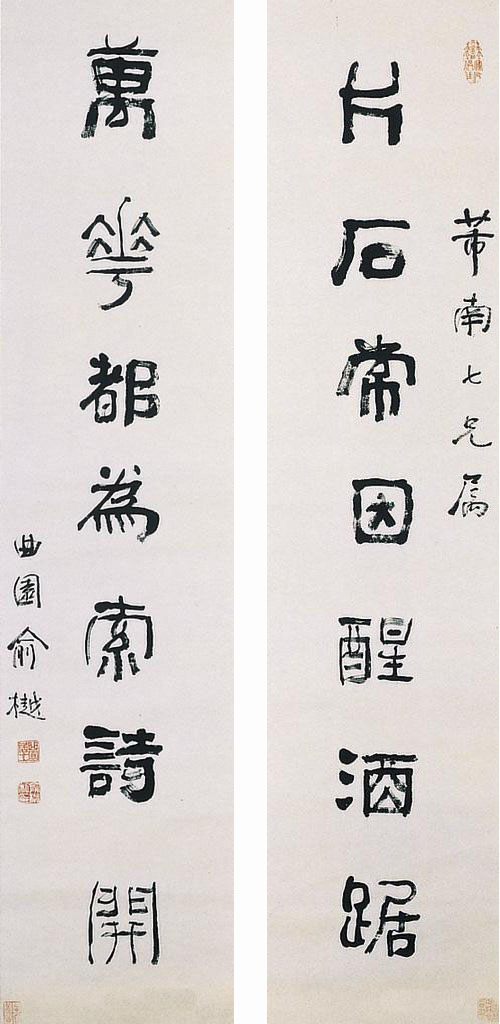 芾南七兄属
片石常因醒酒踞
萬花都為索詩開
曲園俞樾